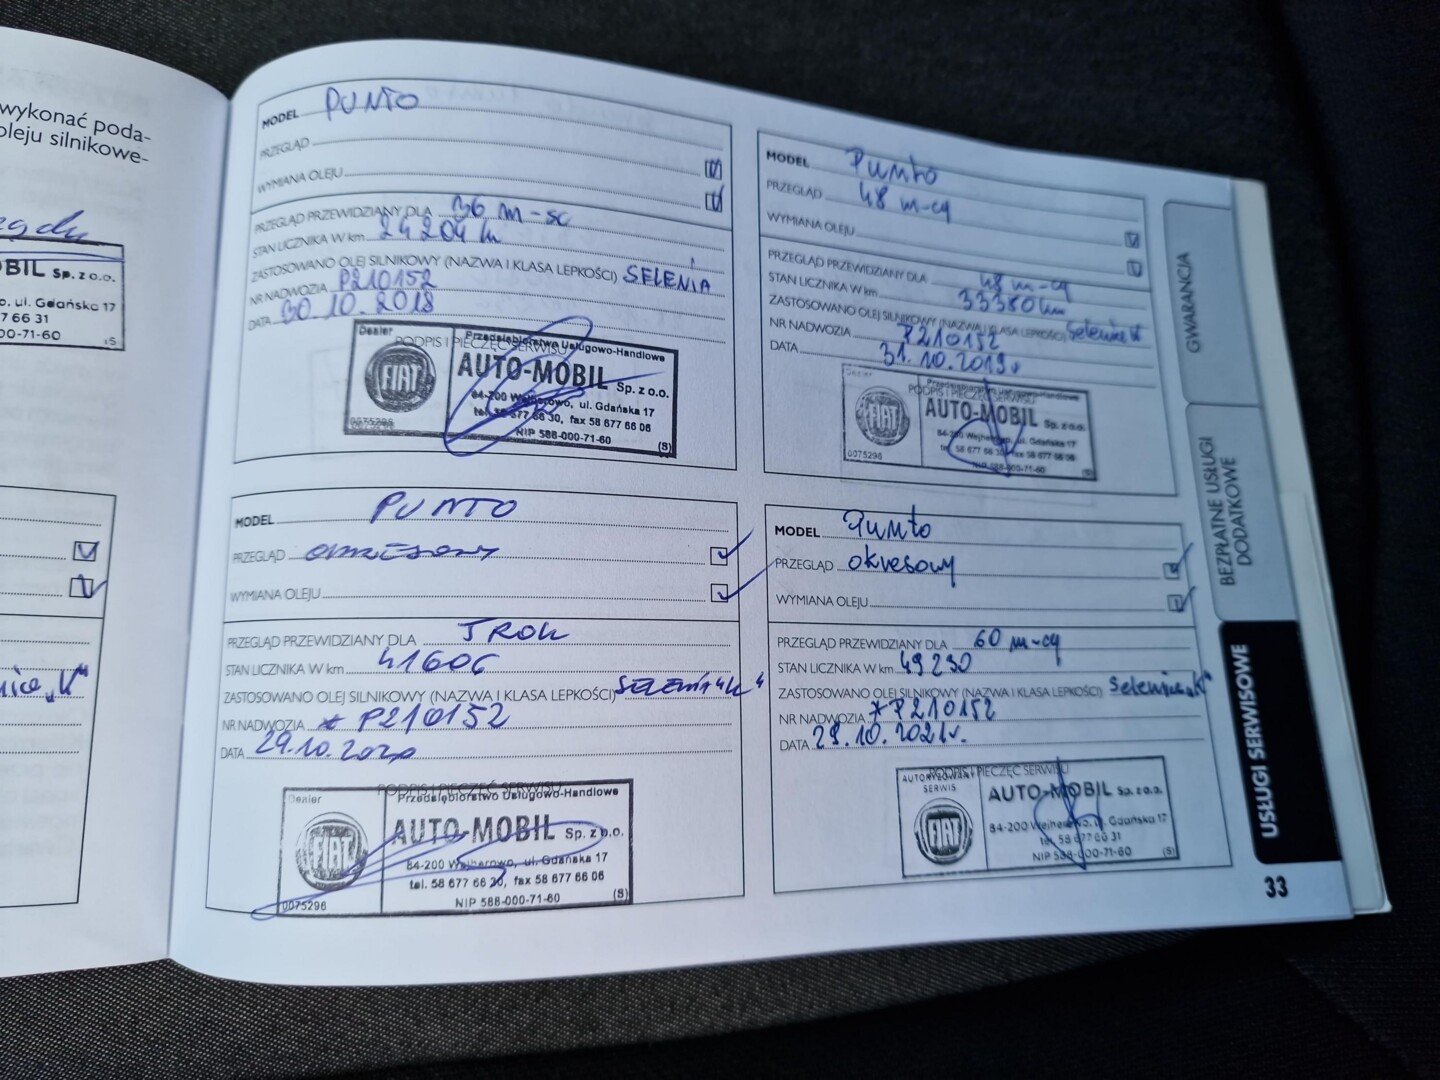 wykonać poda-
oleju silnikowe-
BIL Sp. z o.o.
o. ul. Gdańska 17
7 66 31
00-71-60
(S)
"K"
MODEL PUNTO
PRZEGLĄD
WYMIANA OLEJU
PRZEGLĄD PRZEWIDZIANY DLA 36 m-sc
STAN LICZNIKA W km 24204 k
ZASTOSOWANO OLEJ SILNIKOWY (NAZWA I KLASA LEPKOŚCI) SELENIA
NR NADWOZIA P210152
DATA 30.10.2018
PODPIS I PIECZĘĆ SERWISU
Dealer
Przedsiębiorstwo Usługowo-Handlowe
FIAT
AUTO-MOBIL Sp. z o.o.
84-200 Wejherowo, ul. Gdańska 17
tel. 58 677 66 30, fax 58 677 66 06
0075296
NIP 588-000-71-60 (S)
MODEL Punto
PRZEGLĄD 48 m-cy
WYMIANA OLEJU
PRZEGLĄD PRZEWIDZIANY DLA 48 m-cy
STAN LICZNIKA W km 33380 km
ZASTOSOWANO OLEJ SILNIKOWY (NAZWA I KLASA LEPKOŚCI) Selenia K
NR NADWOZIA P210152
DATA 31.10.2019r
PODPIS I PIECZĘĆ SERWISU
Dealer
Przedsiębiorstwo Usługowo-Handlowe
FIAT
AUTO-MOBIL Sp. z o.o.
84-200 Wejherowo, ul. Gdańska 17
tel. 58 677 66 30, fax 58 677 66 06
0075296
NIP 588-000-71-60 (S)
MODEL PUNTO
PRZEGLĄD okresowy
WYMIANA OLEJU
PRZEGLĄD PRZEWIDZIANY DLA 5 ROK
STAN LICZNIKA W km 41606
ZASTOSOWANO OLEJ SILNIKOWY (NAZWA I KLASA LEPKOŚCI) Selenia "K"
NR NADWOZIA * P210152
DATA 29.10.2020
PODPIS I PIECZĘĆ SERWISU
Dealer
Przedsiębiorstwo Usługowo-Handlowe
FIAT
AUTO-MOBIL Sp. z o.o.
84-200 Wejherowo, ul. Gdańska 17
tel. 58 677 66 30, fax 58 677 66 06
0075296
NIP 588-000-71-60 (S)
MODEL Punto
PRZEGLĄD okresowy
WYMIANA OLEJU
PRZEGLĄD PRZEWIDZIANY DLA 60 m-cy
STAN LICZNIKA W km 49230
ZASTOSOWANO OLEJ SILNIKOWY (NAZWA I KLASA LEPKOŚCI) Selenia "K"
NR NADWOZIA *P210152
DATA 29.10.2021r.
PODPIS I PIECZĘĆ SERWISU
AUTORYZOWANY
SERWIS
FIAT
AUTO-MOBIL Sp. z o.o.
84-200 Wejherowo, ul. Gdańska 17
58 677 66 31
NIP 588-000-71-60 (S)
GWARANCJA
BEZPŁATNE USŁUGI
DODATKOWE
USŁUGI SERWISOWE
33